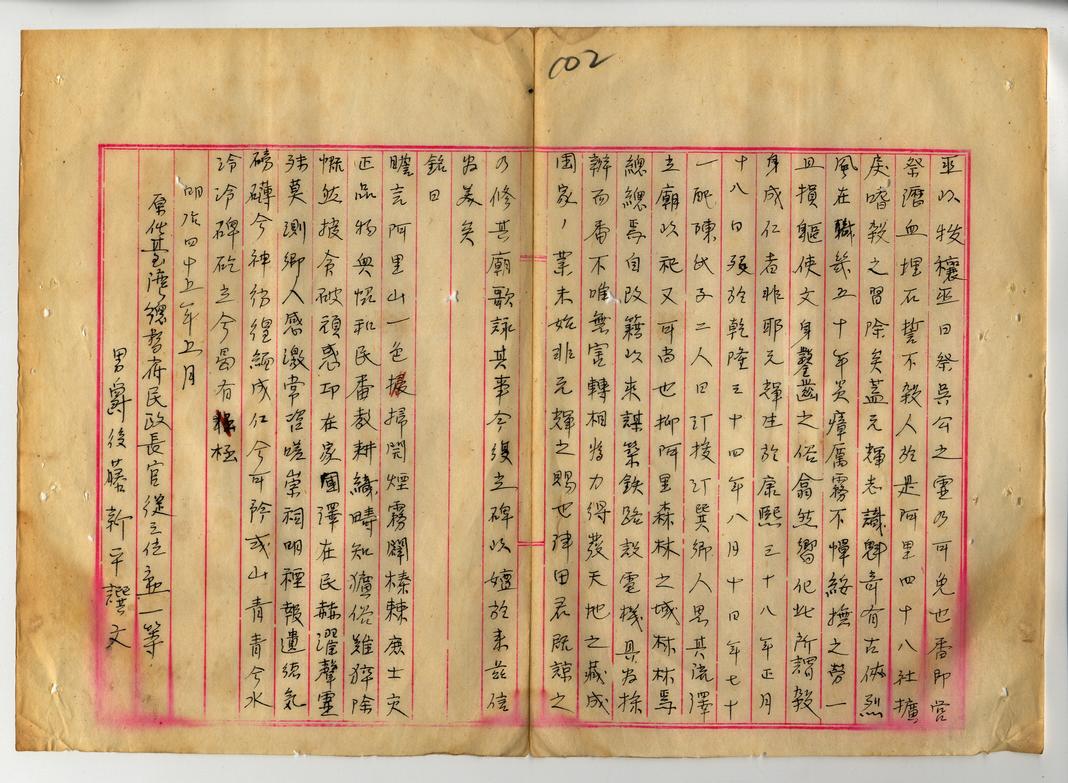 002
巫以牧禳巫曰祭吳公之靈乃可免也番即營
祭瀝血埋石誓不殺人於是阿里四十八社獷
戾嗜殺之習除矣蓋元輝志識魁奇有古俠烈
風在職幾五十年炎瘴厲霧不憚綏撫之勞一
旦損軀使文身鑿齒之俗翕然嚮化此所謂殺
身成仁者非耶元輝生於康熙三十八年正月
十八日歿於乾隆三十四年八月十日年七十
一配陳氏子二人曰汀棱汀巽鄉人思其流澤
立廟以祀又可尚也抑阿里森林之域林林焉
總總焉自改籍以來謀築鉄路設電機具為採
辦而番不唯無害轉相為力得發天地之藏成
國家ノ業未始非元輝之賜也津田君既諒之
乃修其廟歌詠其事今復立碑以嬗於來茲信
為美矣
銘曰
瞻言阿里山一色搌掃閉煙霧闢榛棘鹿士夾
匹品物與愠和民番教耕緣疇知獷俗雖猝除
慨然披肏破頑惑卬在家國澤在民赫濯聲靈
殊莫測鄉人感激常咨嗟崇祠明禋報遺德氣
磅礡兮神彷徨緬成仁兮可矜式山青青兮水
泠泠碑矻立兮曷有極
明治四十五年五月
原任臺灣總督府民政長官從三位勳一等
男爵後藤新平譔文